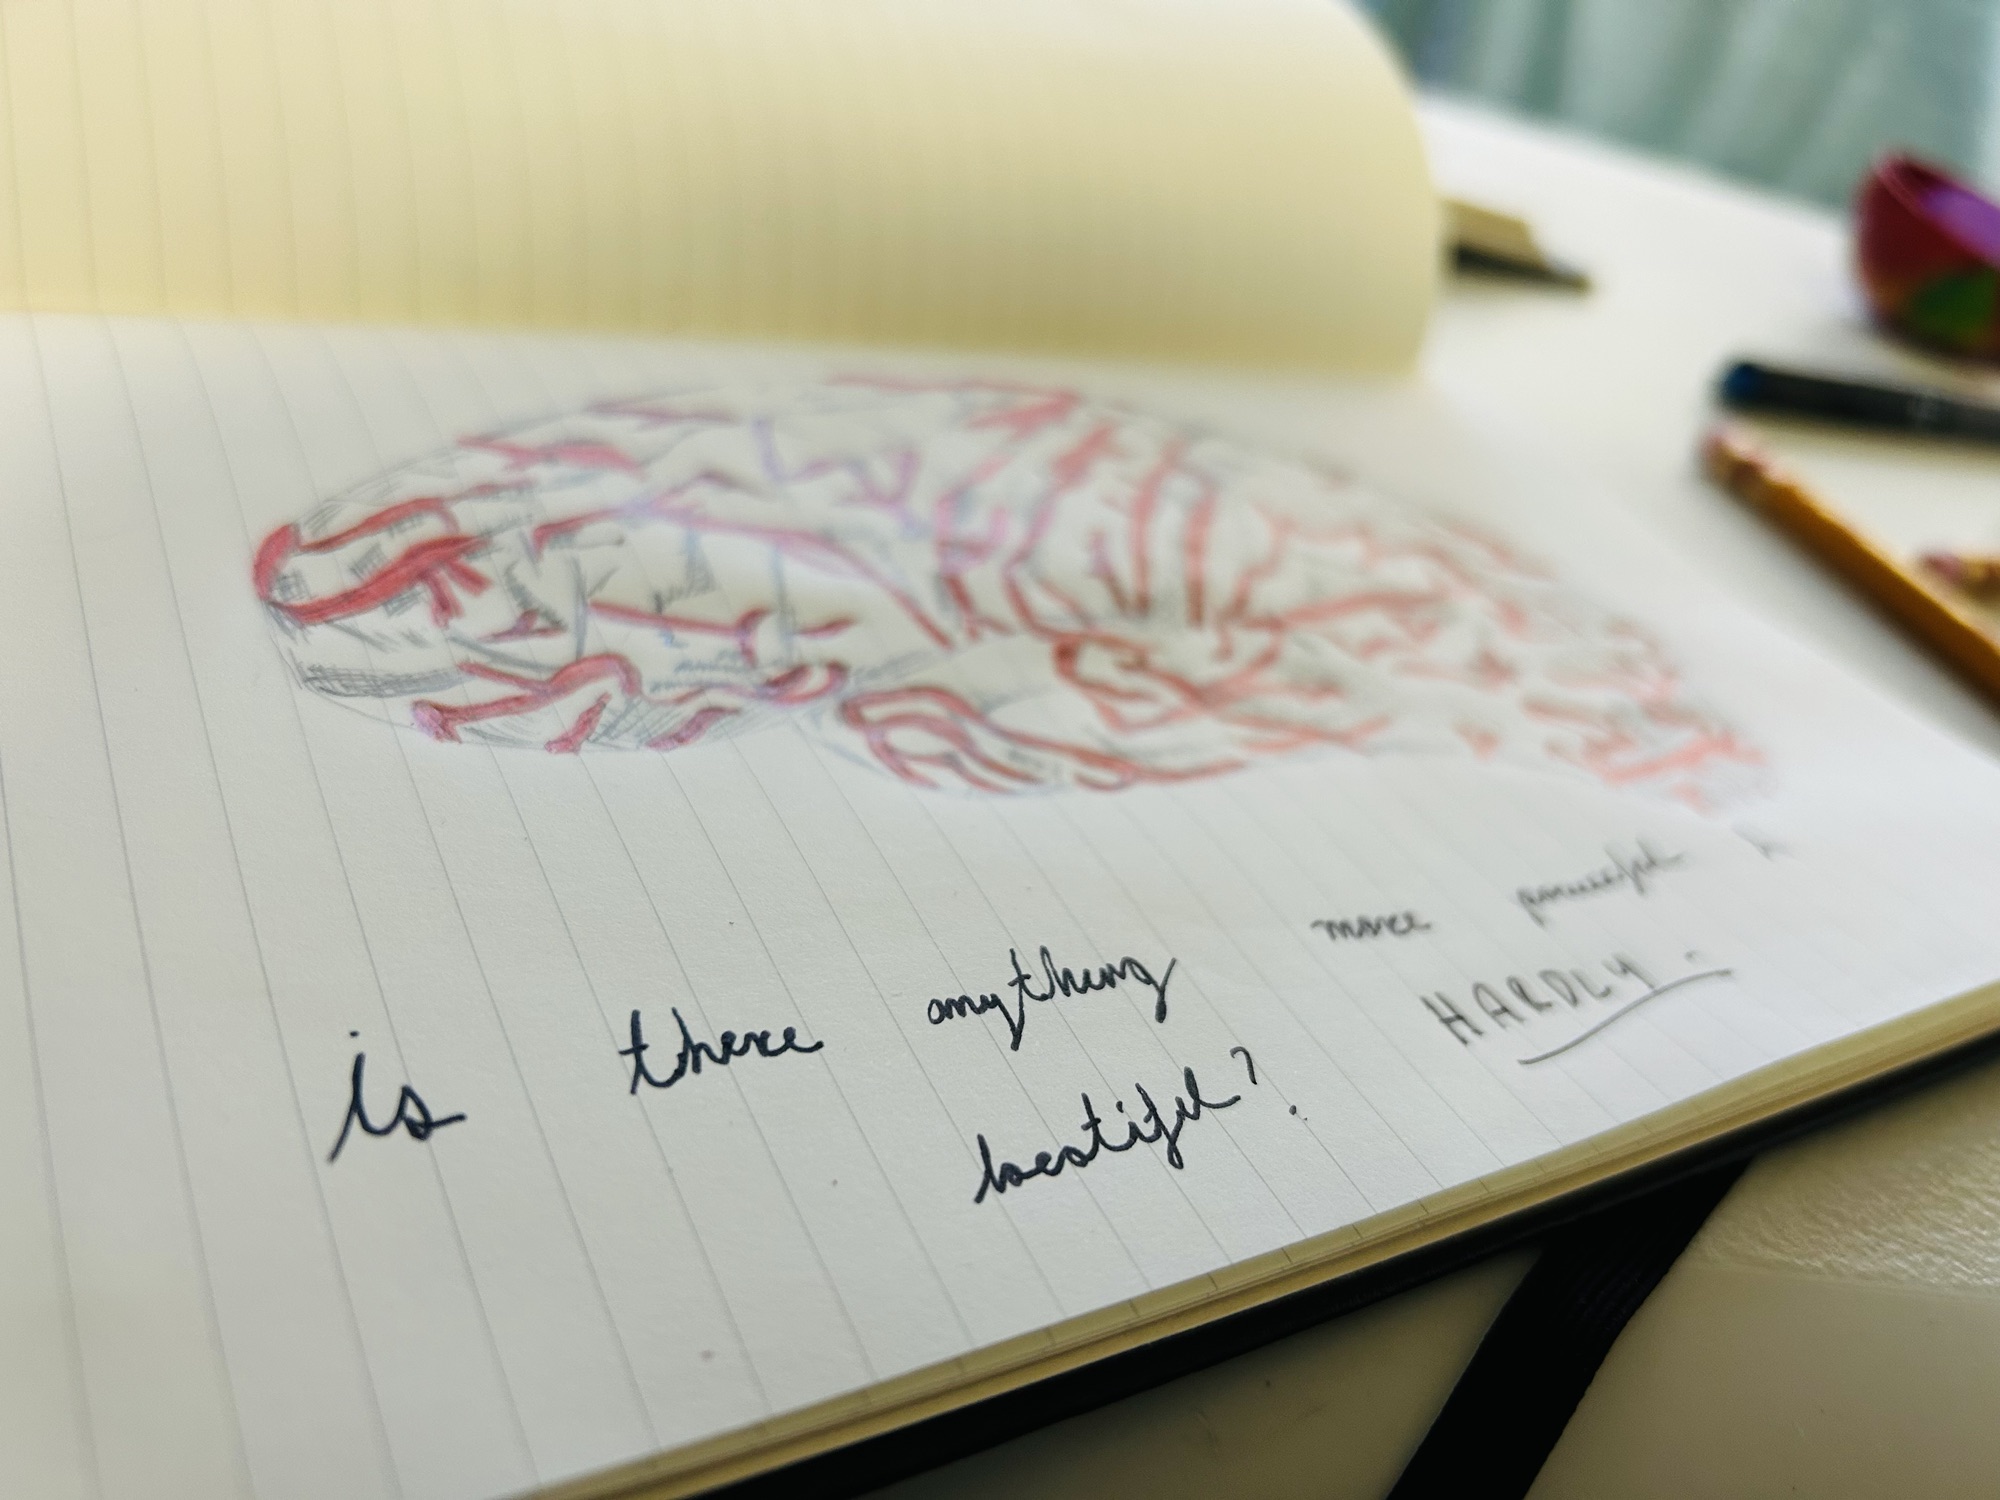 is there anything more powerful
beatiful?
HARDLY.